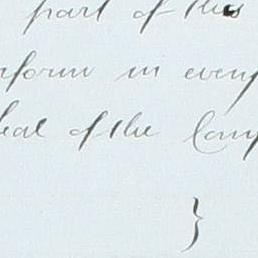 part of this
form in every
eal of the Com
}